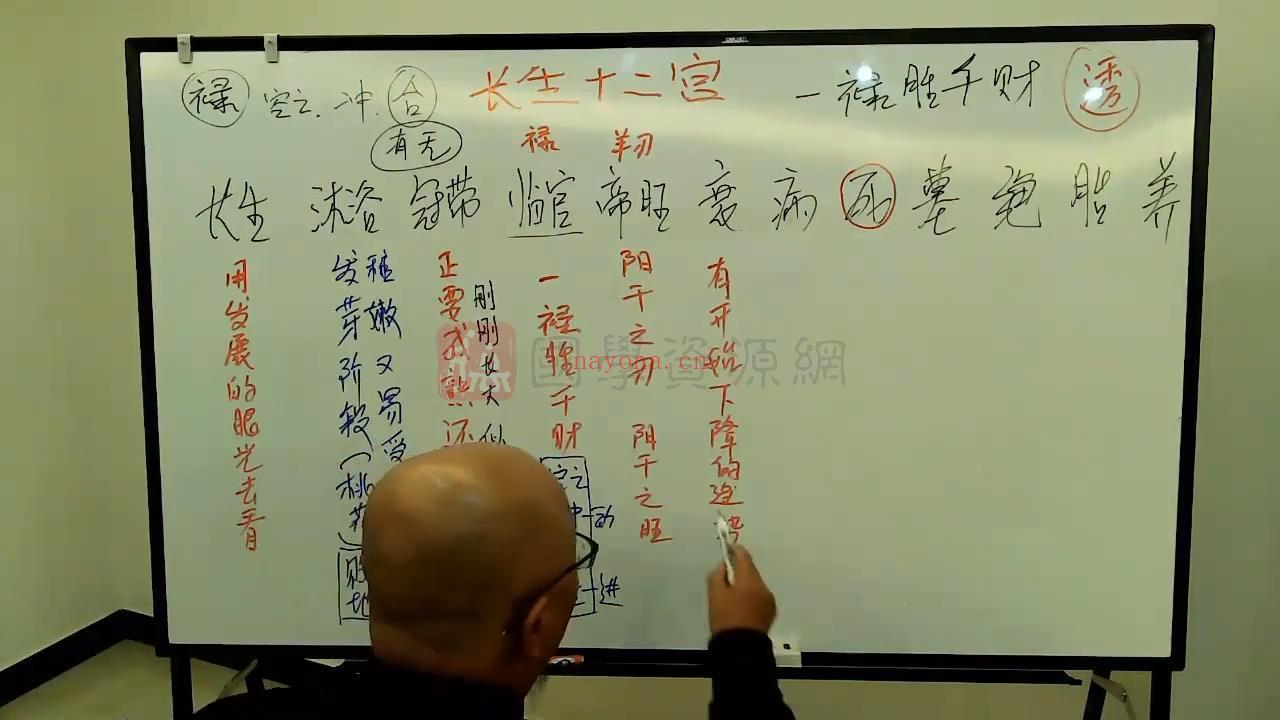 禄 空亡.冲.合 长生十二宫 一禄胜千财 透
有无 禄 羊刃
长生 沐浴 冠带 临官 帝旺 衰 病 死 墓 绝 胎 养
用发展的眼光去看
稚嫩又易受
发芽阶段(桃花)
败地
刚刚长大似
正要成熟还
一禄胜千财
空亡
冲-动
进
阳干之刃 阳干之旺
有开始下降的迹
國學資源網
nayona.cn